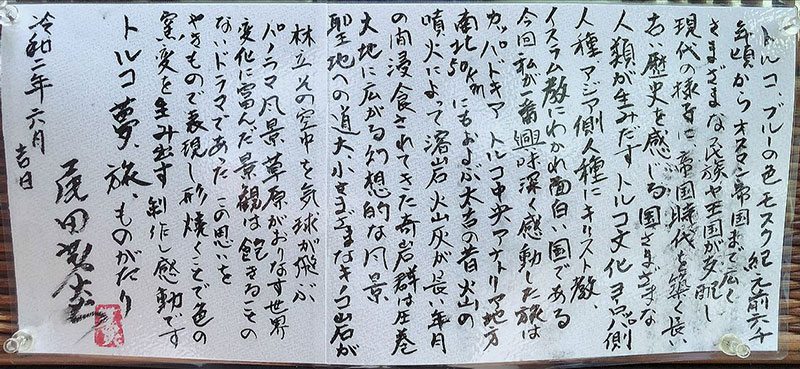 トルコ、ブルーの色モスク紀元前六千
年頃からオスマン帝国まで広く
さまざまな民族や王国が支配し
現代の様子に帝国時代を築く長い
古い歴史を感じる国さまざまな
人類が生みだすトルコ文化ヨーロッパ側
人種アジア側人種にキリスト教、
イスラム教にわかれ面白い国である
今回私が一番興味深く感動した旅は
カッパドキアトルコ中央アナトリア地方
南北50kmにもおよぶが太古の昔火山の
噴火によって溶岩火山灰が長い年月
の間浸食されてきた奇岩群は圧巻
大地に広がる幻想的な風景
聖地への道大小さまざまなキノコ岩石が
林立その空中を気球が飛ぶ
パノラマ風景草原がおりなす世界
変化に富んだ景観は飽きることの
ないドラマであったこの思いを
やきもので表現し形焼くことで色の
窯変を生み出す制作し感動です
トルコ夢、旅、ものがたり
令和二年六月吉日
尾田